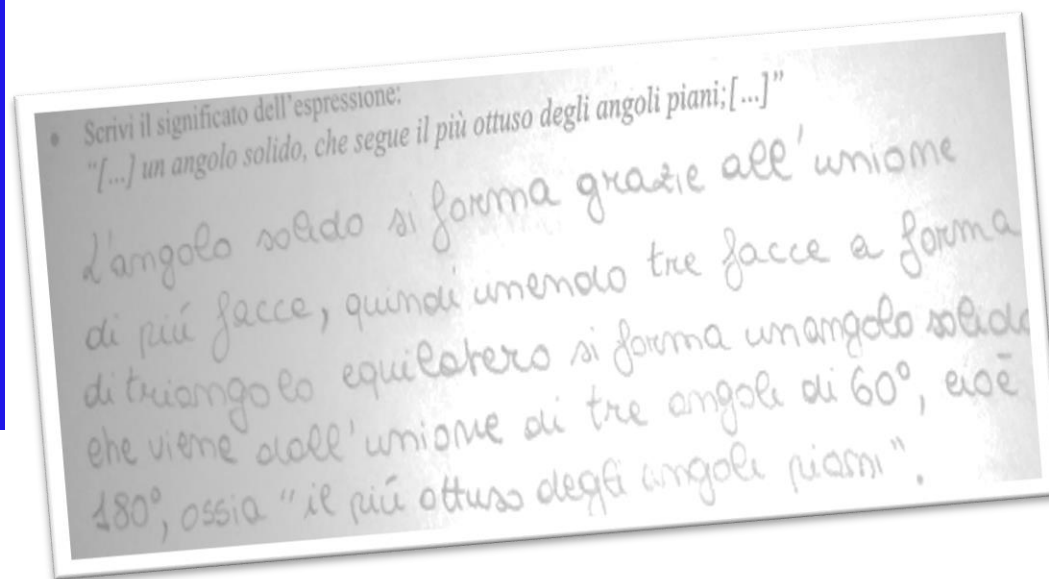 • Scrivi il significato dell'espressione:
"[...] un angolo solido, che segue il più ottuso degli angoli piani;[...]"
L'angolo solido si forma grazie all'unione
di piú facce, quindi unendo tre facce a forma
di triangolo equilatero si forma un angolo solido
che viene dall'unione di tre angoli di 60°, cioè
180°, ossia "il piú ottuso degli angoli piani".